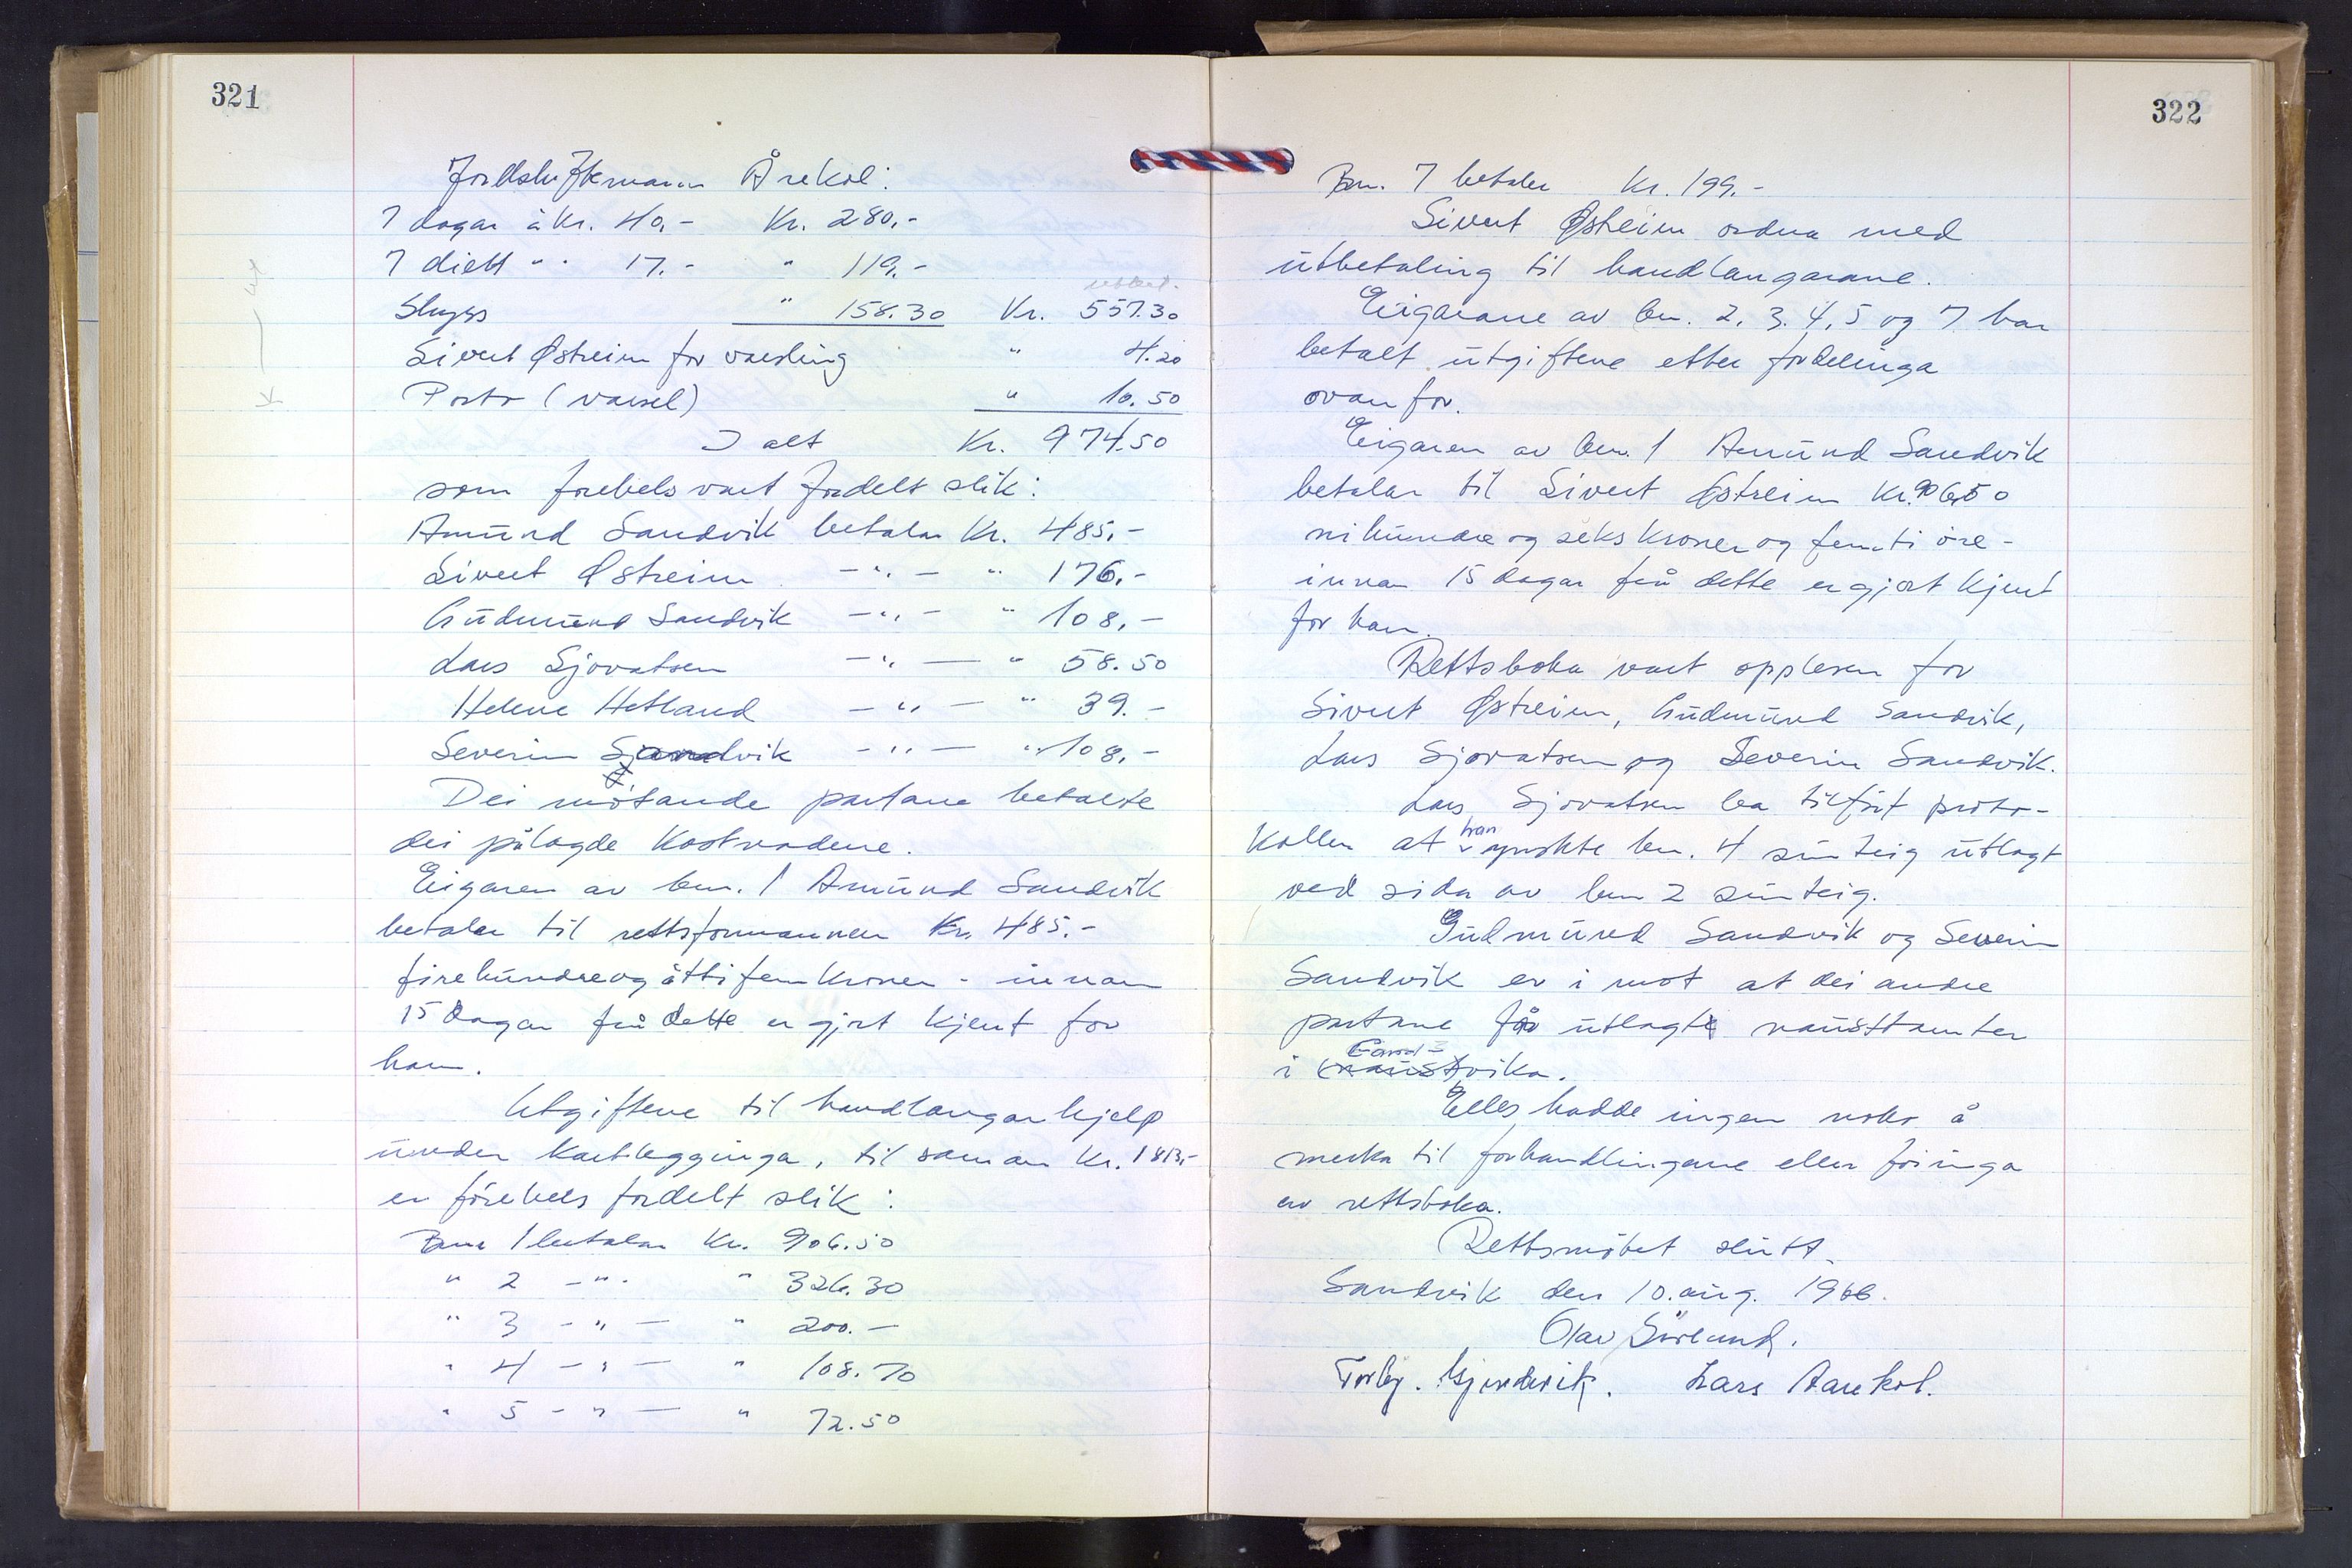 321
Jordskiftemann Årekol:
7 dagar à kr. 40,- Kr. 280,-
7 diett " " 17.- " 119,-
utbet.
Skyss " 158.30 Kr. 557.30
Sivert Østreim for varsling " 4.20
Porto (varsel) " 10.50
I alt Kr. 974.50
som førebels vart fordelt slik:
Amund Sandvik betalar Kr. 485,-
Sivert Østreim - " - " 176.-
Gudmund Sandvik - " - " 108,-
Lars Sjovatsen - " - " 58.50
Helene Hetland - " - " 39.-
Severin Sandvik - " - " 108,-
Dei møtande partane betalte
dei pålagde kostnadene.
Eigaren av bnr. 1 Amund Sandvik
betalar til rettsformannen Kr. 485.-
firehundreogåttifem kroner - innan
15 dagar frå dette er gjort kjent for
ham.
Utgiftene til handlangarhjelp
under kartlegginga, til saman Kr. 1813,-
er førebels fordelt slik:
Bnr 1 betalar Kr. 906.50
" 2 - " - " 326.30
" 3 - " - " 200.-
" 4 - " - " 108.70
" 5 - " - " 72.50
322
Bnr. 7 betaler Kr. 199.-
Sivert Østreim ordna med
utbetaling til handlangarane.
Eigarane av bnr. 2, 3, 4, 5 og 7 har
betalt utgiftene etter fordelinga
ovanfor.
Eigaren av bnr. 1 Amund Sandvik
betalar til Sivert Østreim Kr. 906,50
nihundre og seks kroner og femti øre -
innan 15 dagar frå dette er gjort kjent
for han.
Rettsboka vart opplesen for
Sivert Østreim, Gudmund Sandvik,
Lars Sjovatsen og Severin Sandvik.
Lars Sjovatsen ba tilført proto-
kollen at han ynskte bnr. 4 sin teig utlagt
ved sida av bnr 2 sin teig.
Gudmund Sandvik og Severin
Sandvik er i mot at dei andre
partane får utlagt nausttomter
i Sandvika.
Elles hadde ingen noko å
merka til forhandlingane eller føringa
av rettsboka.
Rettsmøtet slutt.
Sandvik den 10. aug. 1966.
Olav Sørlund.
Torbj. Gjendvik. Lars Aarekol.